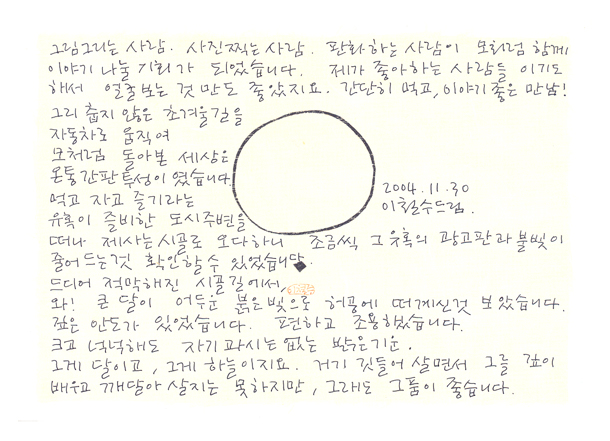 그림그리는 사람. 사진찍는 사람. 판화하는 사람이 모처럼 함께
이야기 나눌 기회가 되었습니다. 제가 좋아하는 사람들 이기도
해서 얼굴보는 것 만도 좋았지요. 간단히 먹고, 이야기 좋은 만남!
그리 춥지 않은 초겨울길을
자동차로 움직여
모처럼 돌아본 세상은
온통 간판투성이였습니다
먹고 자고 즐기라는
유혹이 즐비한 도시주변을
2004.11.30
이철수드림.
떠나 제사는시골로 오다하니 조금씩 그 유혹의 광고판과 불빛이
줄어드는것 확인할 수 있었습니다.
드디어 적막해진 시골길에서,
와! 큰 달이 어두운 붉은빛으로 허공에 떠계신것 보았습니다.
깊은 안도가 있었습니다. 편하고 조용했습니다.
크고 넉넉해도 자기과시는 없는 밝은기운.
그게 달이고, 그게 하늘이지요. 거기 깃들어 살면서 그를 깊이
배우고 깨달아 살지는 못하지만, 그래도 그룸이 좋습니다.